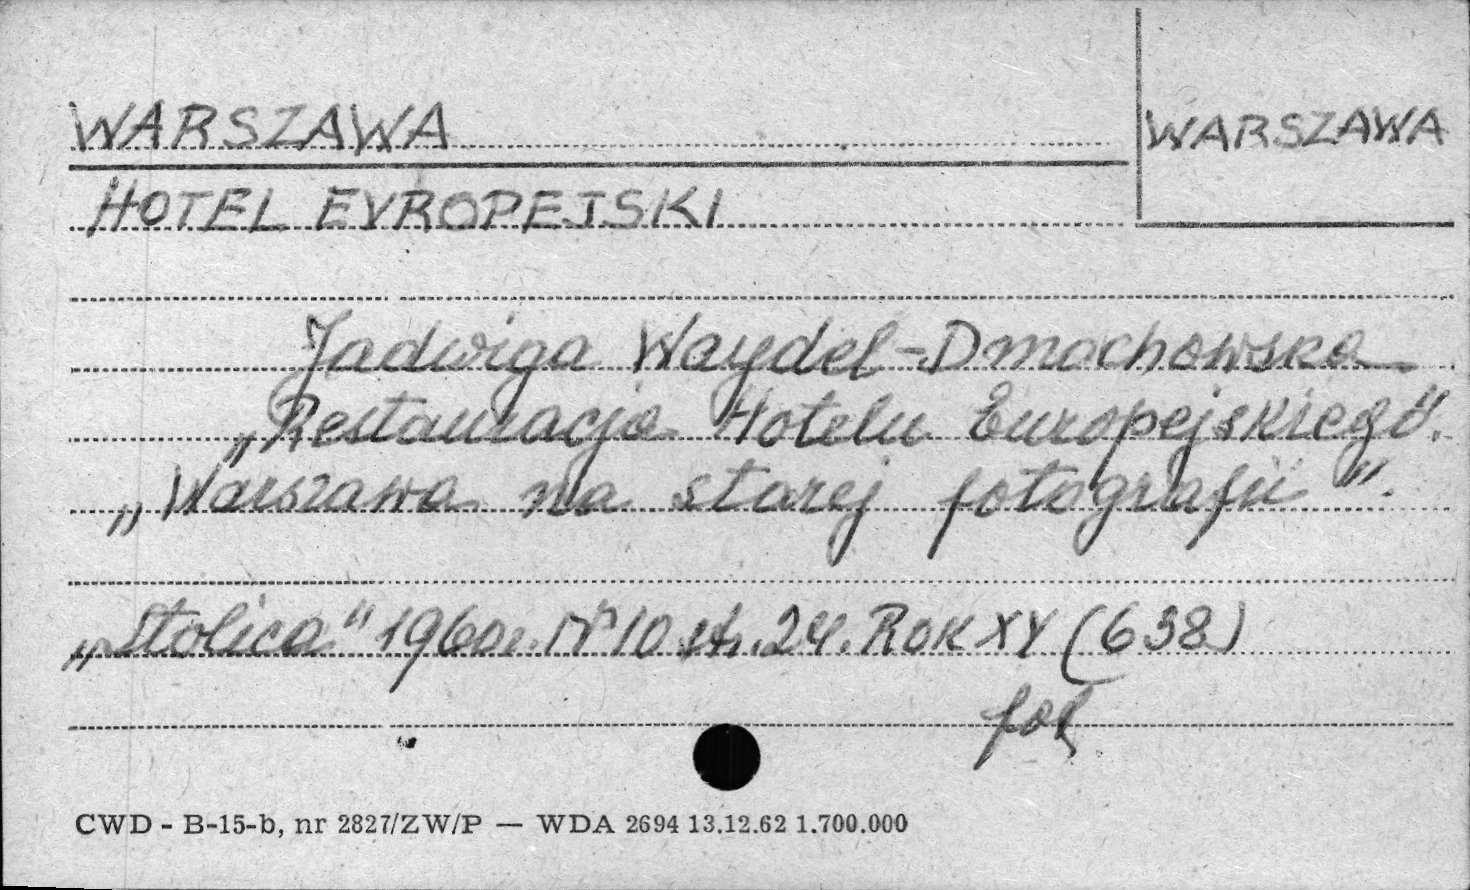 WARSZAWA
WARSZAWA
HOTEL EVROPEJSKI
Jadwiga Waydel-Dmochowska
„Restauracja Hotelu Europejskiego".
„Warszawa na starej fotografii".
„Stolica" 1960r. Nr 10 str. 24. ROK XV (638)
fot
CWD - B-15-b, nr 2827/ZW/P — WDA 2694 13.12.62 1.700.000